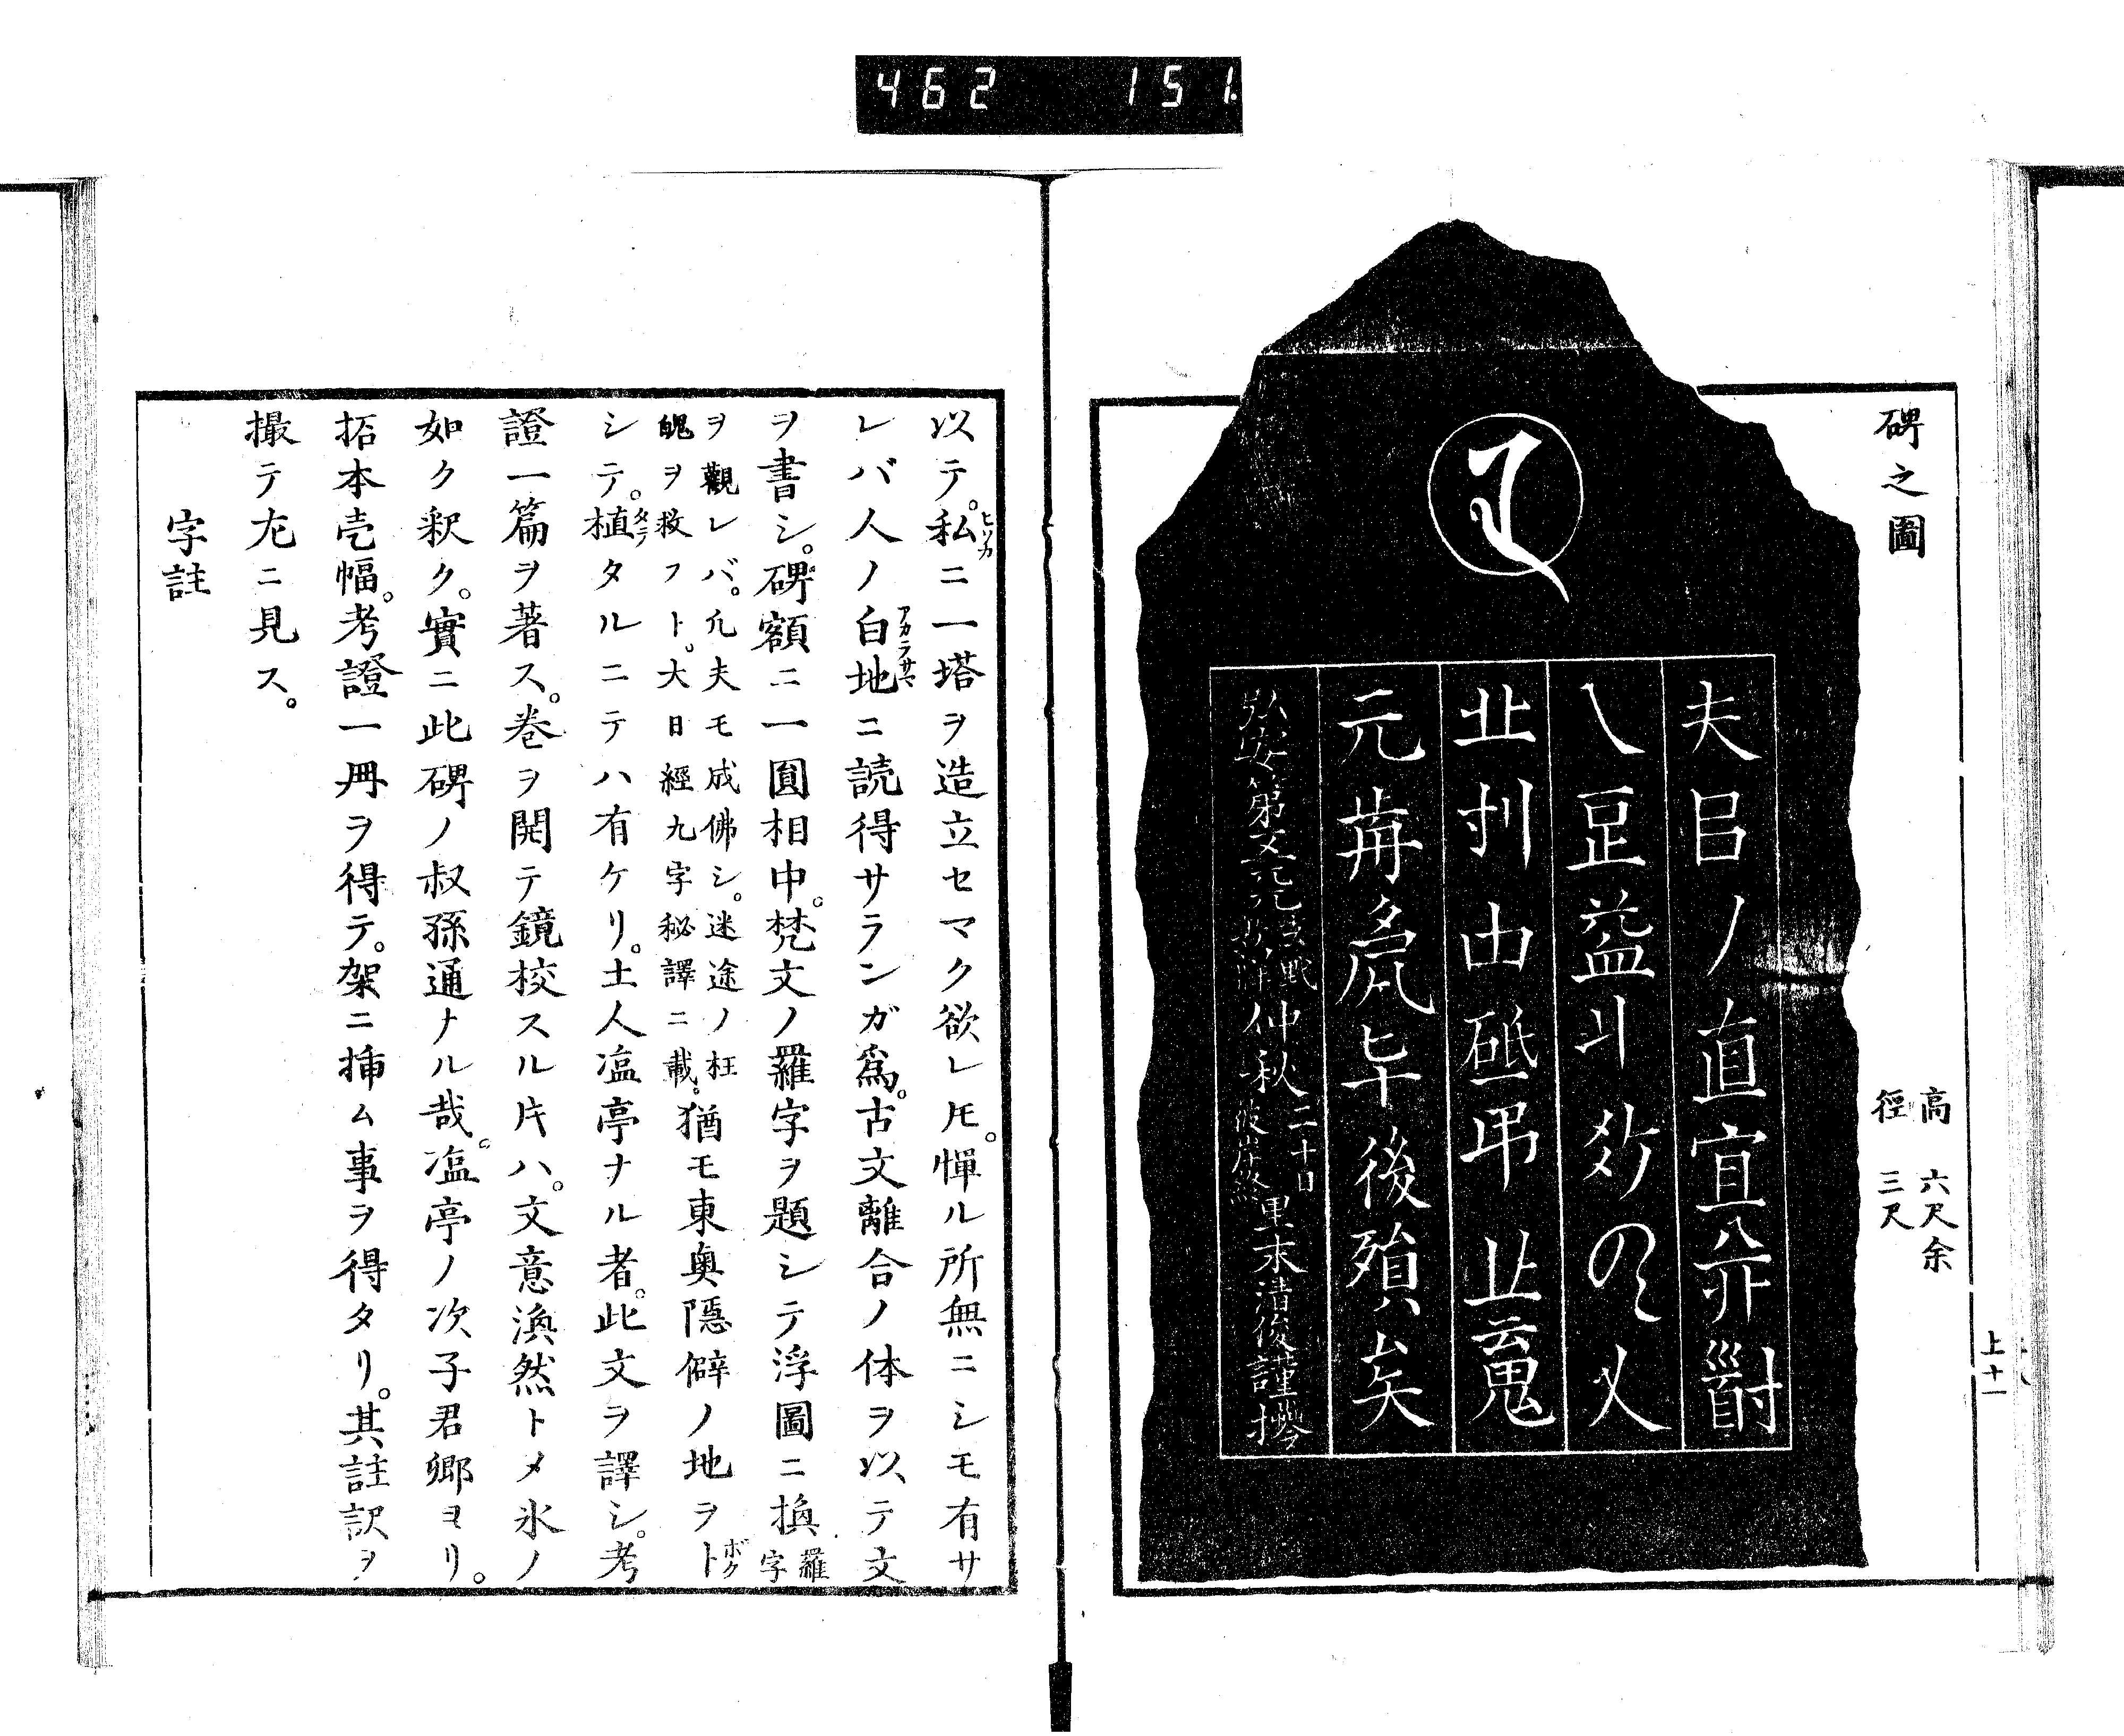 462 151
碑之圖
高 六尺余
徑 三尺
夫㠯ノ直宜
乀 益丩
丱 由砥弔
元 後殞矣
弘安第 仲秋二十日 末清俊謹
上十一
以テ。私ヒソカニ一塔ヲ造立セマク欲レ𪜈。憚ル所無ニシモ有サ
レバ人ノ白地アカラサマニ読得サランガ爲。古文離合ノ体ヲ以テ文
ヲ書シ。碑額ニ一圓相中。梵文ノ羅字ヲ題シテ浮圖ニ換羅字
ヲ觀レバ。凢夫モ成佛シ。迷途ノ枉
魄ヲ救フト。大日經九字秘譯ニ載。猶モ東奥隠僻ノ地ヲトボク
シテ。植タテタルニテハ有ケリ。土人塩亭ナル者。此文ヲ譯シ。考
證一篇ヲ著ス。巻ヲ開テ鏡校スル片ハ。文意渙然トメ氷ノ
如ク釈ク。實ニ此碑ノ叔孫通ナル哉。塩亭ノ次子君郷ヨリ。
拓本壱幅。考證一冊ヲ得テ。架ニ挿ム事ヲ得タリ。其註訳ヲ
撮テ左ニ見ス。
字註